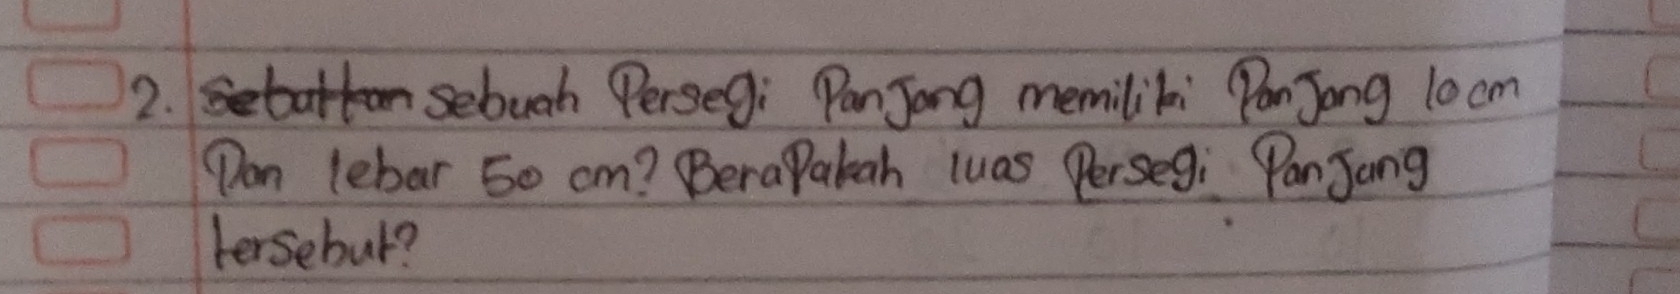 2. Sebutkan sebuah Persegi Panjang memiliki Panjang 10 cm
Dan lebar 50 cm? Berapakah luas Persegi Panjang
tersebut?